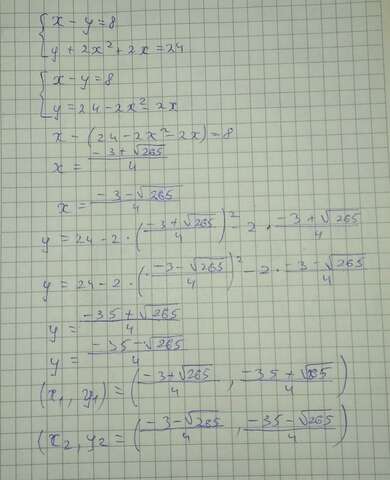 { x - y = 8
{ y + 2x² + 2x = 24
{ x - y = 8
{ y = 24 - 2x² - 2x
x - (24 - 2x² - 2x) = 8
x = (-3 + √265)/4
x = (-3 - √265)/4
y = 24 - 2 · ((-3 + √265)/4)² - 2 · (-3 + √265)/4
y = 24 - 2 · ((-3 - √265)/4)² - 2 · (-3 - √265)/4
y = (-35 + √265)/4
y = (-35 - √265)/4
(x₁, y₁) = ((-3 + √265)/4 , (-35 + √265)/4)
(x₂, y₂ = ((-3 - √265)/4 , (-35 - √265)/4)